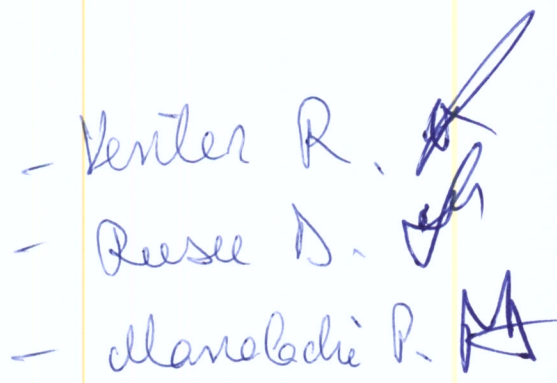 - Venter R.
- Rusu D.
- Manolachi P.